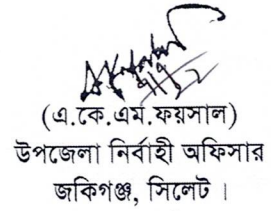 (এ.কে.এম.ফয়সাল)
উপজেলা নির্বাহী অফিসার
জকিগঞ্জ, সিলেট ।